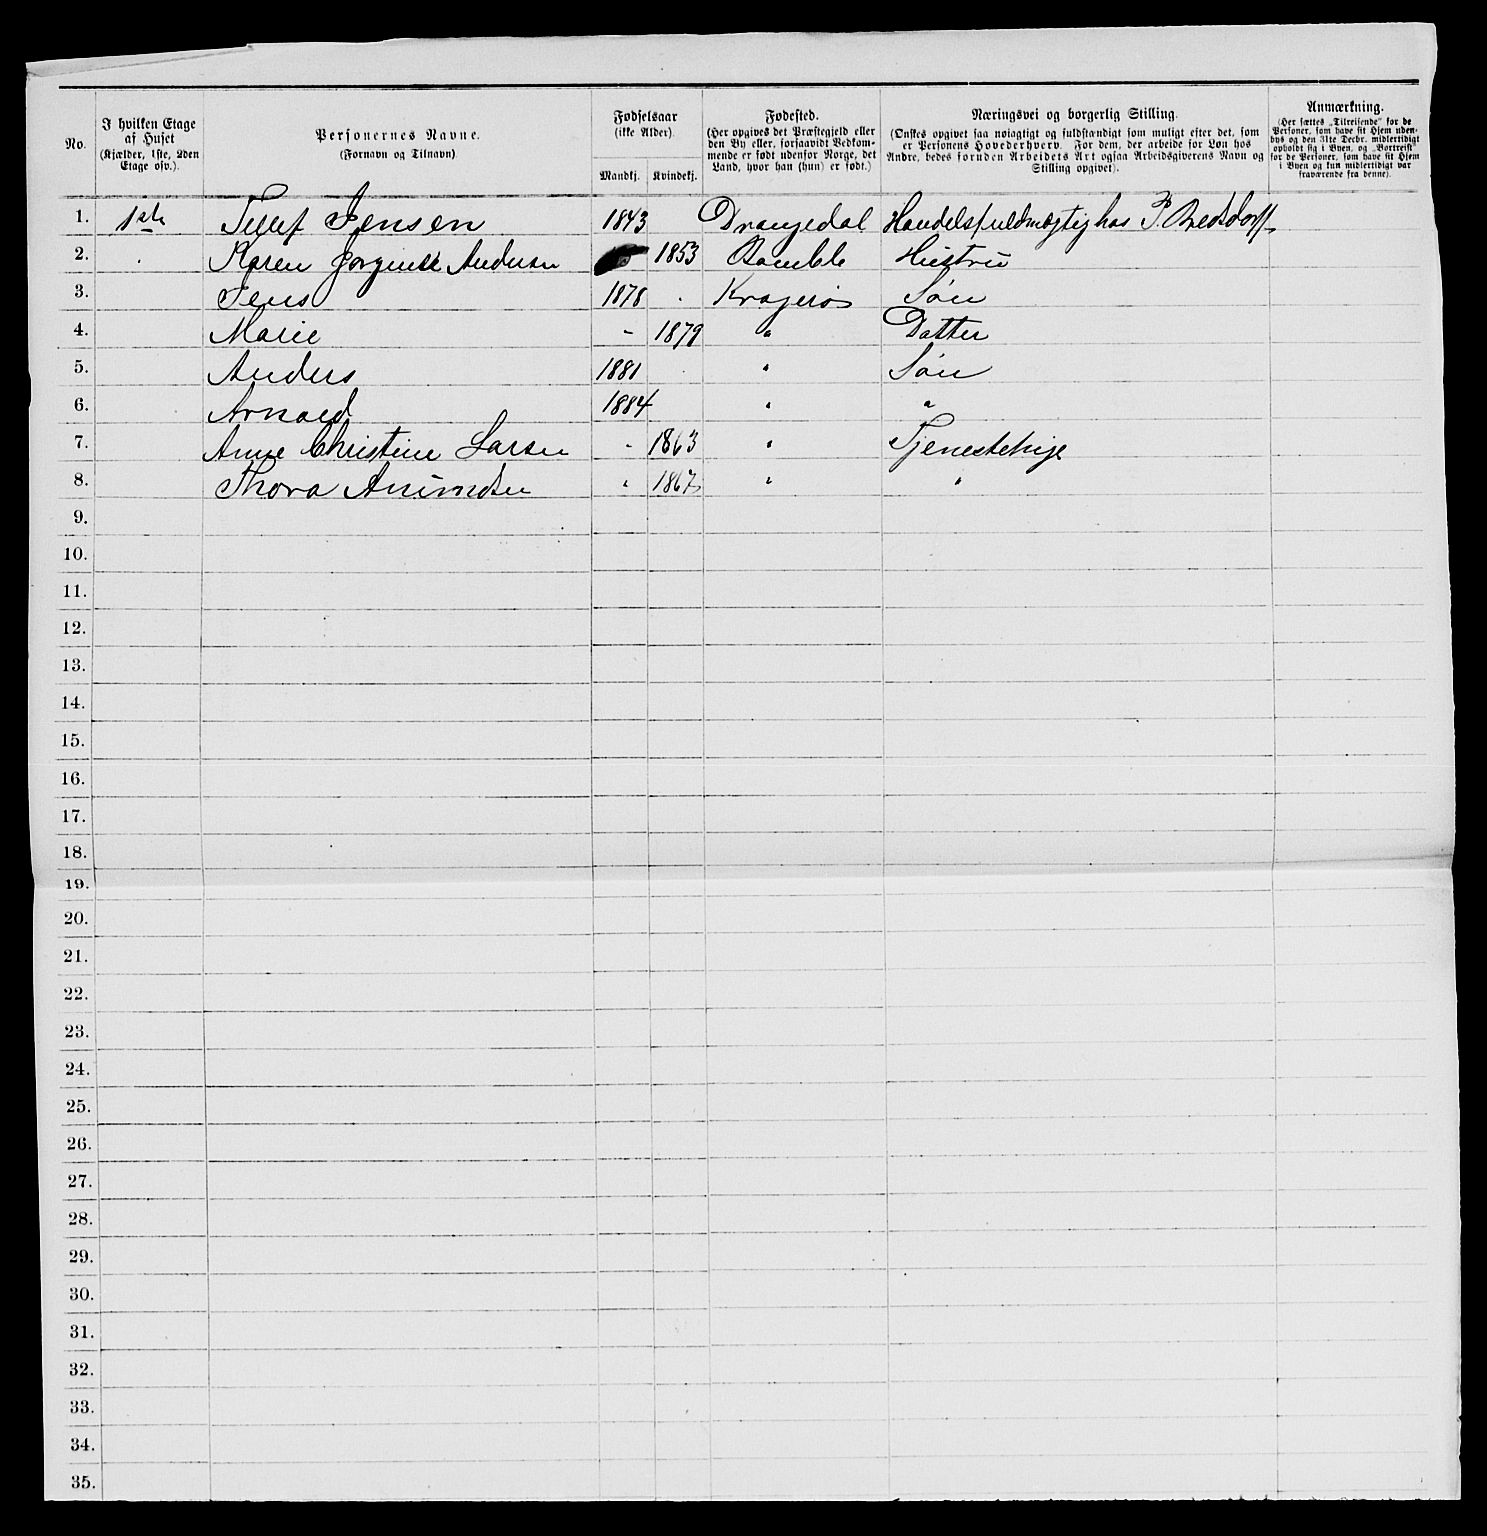 No.
I hvilken Etage af Huset
(Kjælder, 1ste, 2den Etage osv.).
Personernes Navne.
(Fornavn og Tilnavn)
Fødselsaar
(ikke Alder).
Mandkj. Kvindekj.
Fødested.
(Her opgives det Præstegjeld eller
den By eller, forsaavidt Vedkom-
mende er født udenfor Norge, det
Land, hvor han (hun) er født.)
Næringsvei og borgerlig Stilling.
(Ønskes opgivet saa nøiagtigt og fuldstændigt som muligt efter det, som
er Personens Hovederhverv. For dem, der arbeide for Løn hos
Andre, bedes foruden Arbeidets Art ogsaa Arbeidsgiverens Navn og
Stilling opgivet).
Anmærkning.
(Her sættes „Tilreisende“ for de
Personer, som have sit Hjem uden-
bys og den 31te Decbr. midlertidigt
opholdt sig i Byen, og „Bortreist“
for de Personer, som have sit Hjem
i Byen og kun midlertidigt var
fraværende fra denne).
1. 1ste Tellef Jensen 1843 Drangedal Handelsfuldmægtig hos P. Bredsdorff
2. Karen Jorgine Andersen 1853 Bamble Hustru
3. Jens 1878 Kragerø Søn
4. Marie - 1879 " Datter
5. Anders 1881 " Søn
6. Arnold 1884 " "
7. Anne Christine Larsen - 1863 " Tjenestepige
8. Thora " 1867 " "
9.
10.
11.
12.
13.
14.
15.
16.
17.
18.
19.
20.
21.
22.
23.
24.
25.
26.
27.
28.
29.
30.
31.
32.
33.
34.
35.